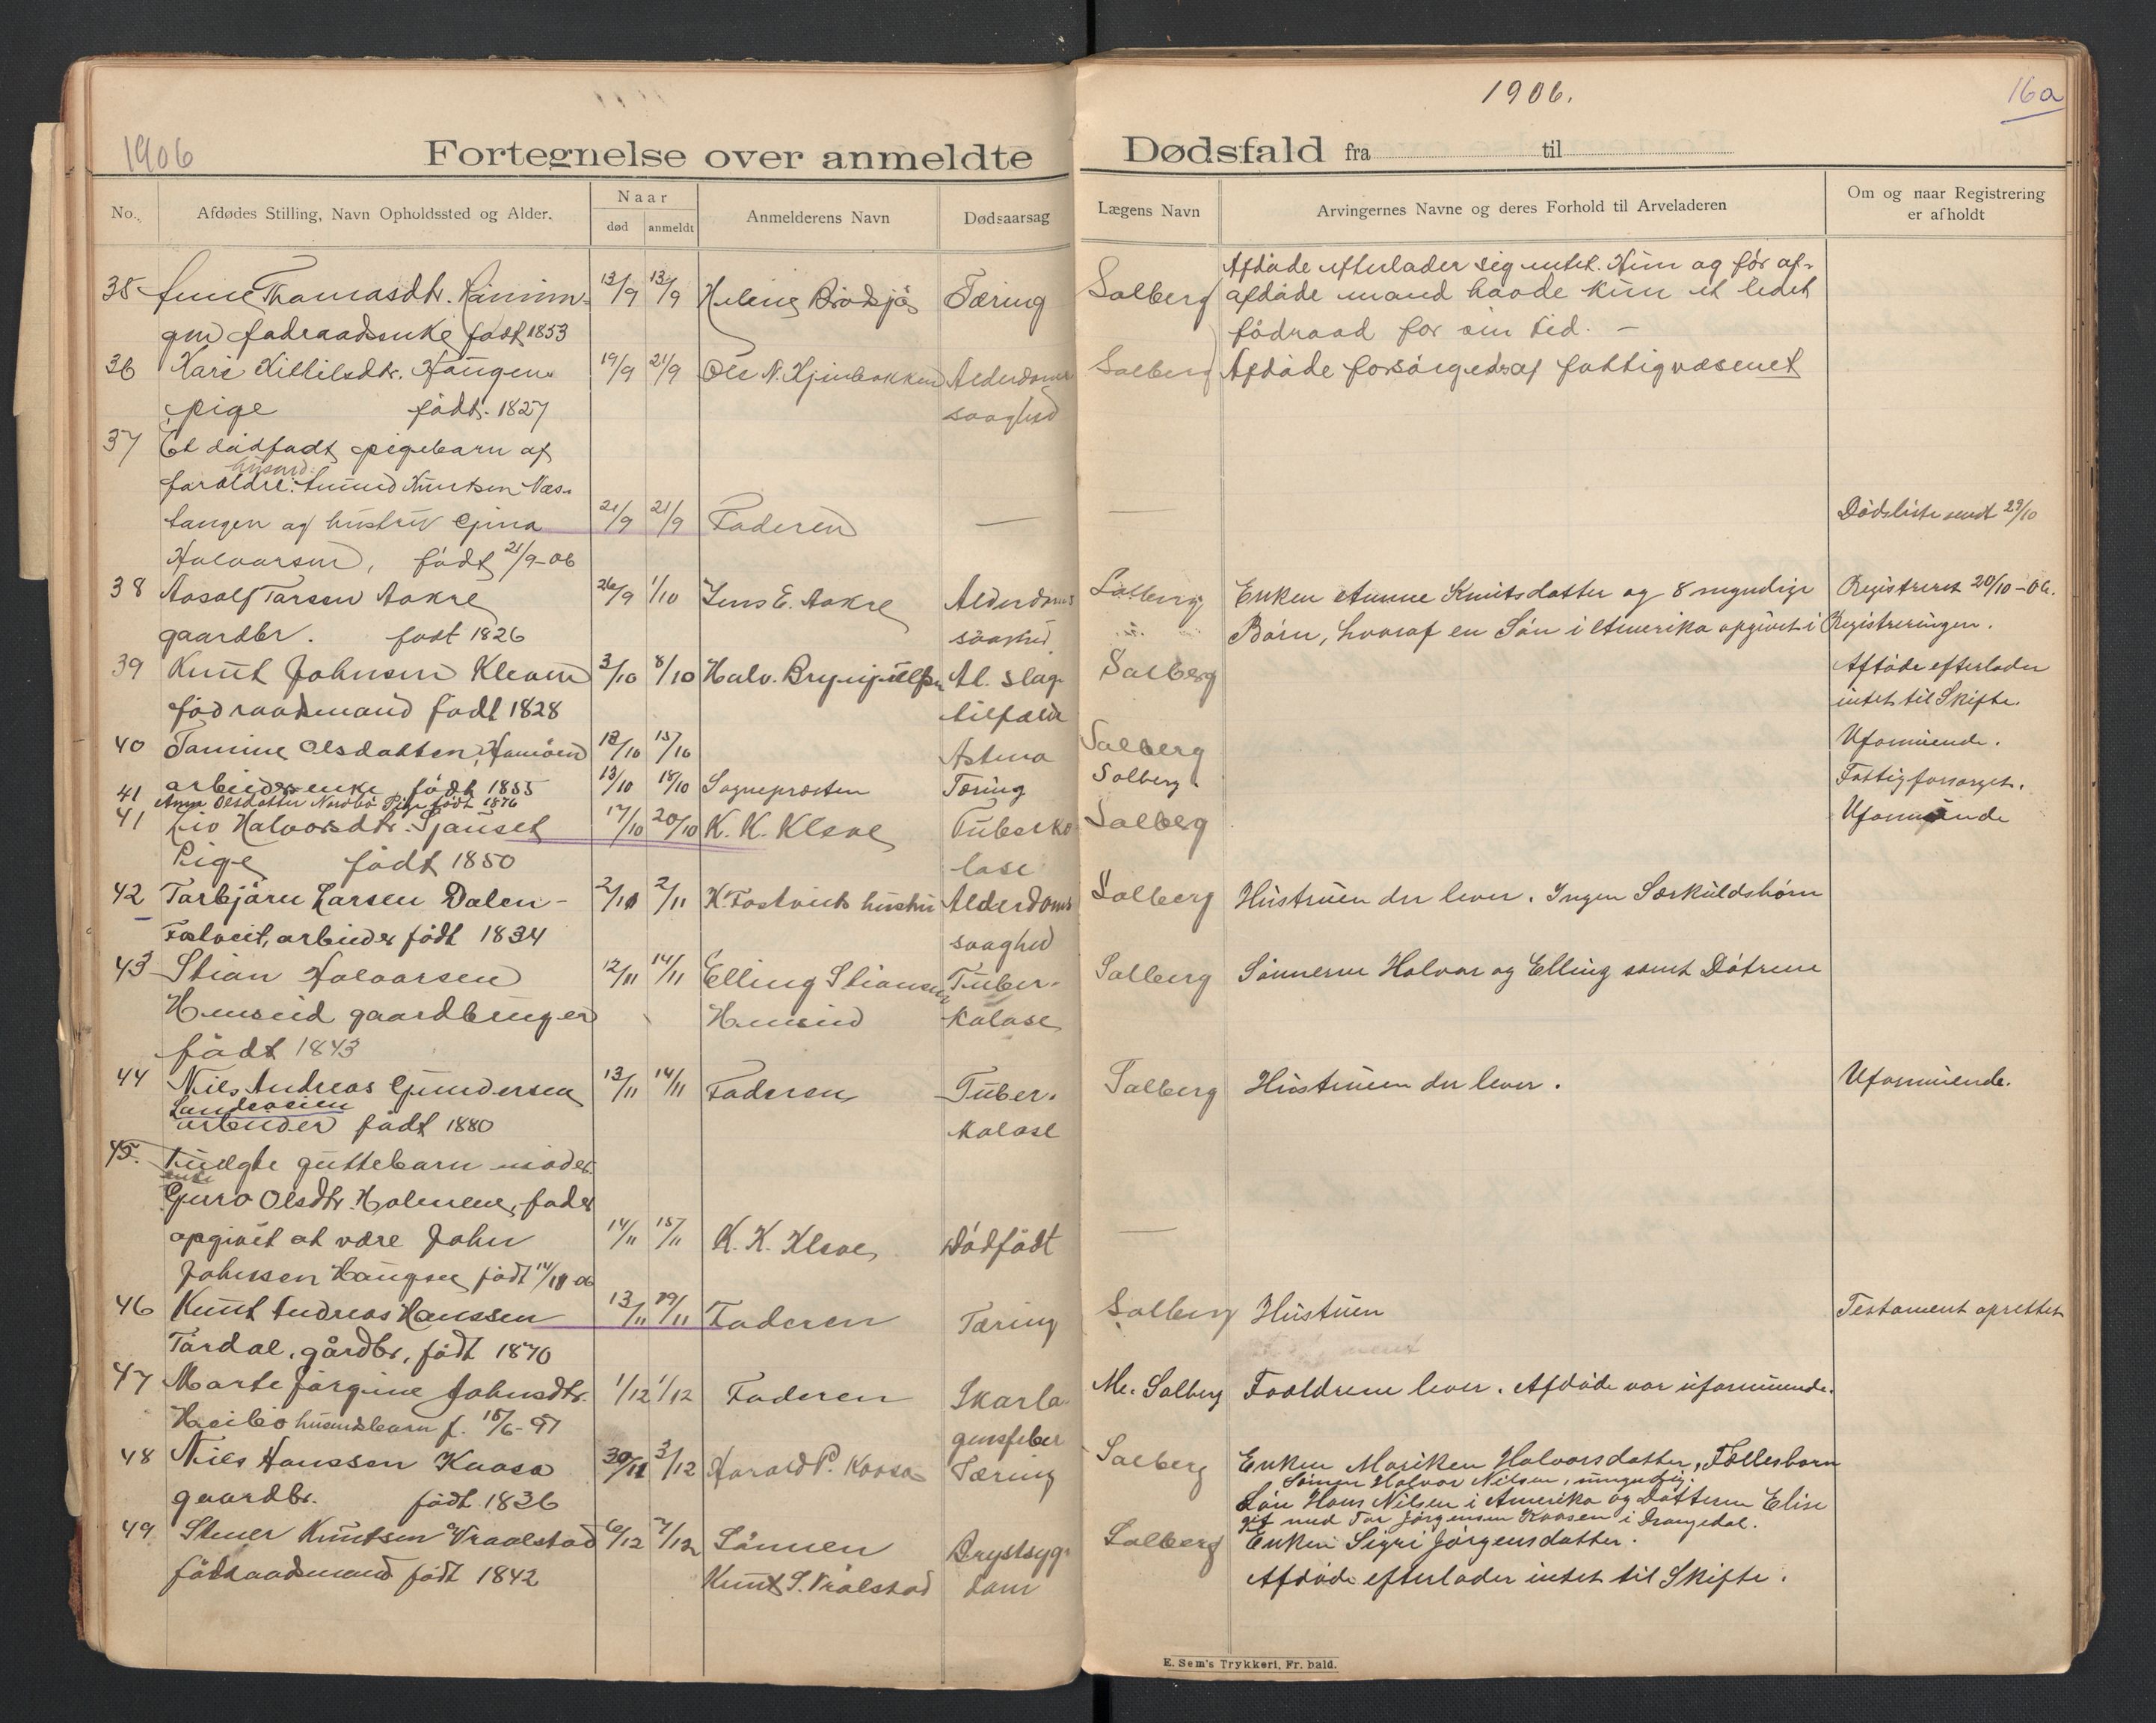 1906
1906.
16a
Fortegnelse over anmeldte Dødsfald fra til
No. Afdødes Stilling, Navn Opholdssted og Alder. Naar død anmeldt Anmelderens Navn Dødsaarsag Lægens Navn Arvingernes Navne og deres Forhold til Arveladeren Om og naar Registrering er afholdt
Afdøde efterlader sig intet. Hun og før af-
35 Thomasdtr. 13/9 13/9 Tæring Salberg afdøde mand havde kun et ledet
født 1853 födraad for sin tid. —
36 Kari Kittilsdtr. Haugen 19/9 21/9 Ole N. Alderdoms Salberg Afdøde forsörgedes af fattigvæsenet
pige født. 1827 svaghed
37 Et dødfødt pigebarn af
husmd.
forældre: Knutsen Næs-
tangen og hustru Gina 21/9 21/9 Faderen — — Dödsliste sendt 29/10
Halvorsen, født 21/9-06
38 Aasolf Tarsen Aakre 26/9 1/10 Jens E. Aakre Alderdoms Salberg Enken Anne Knutsdatter og 8 myndige Registreret 20/10-06.
gaardbr. født 1826 svaghed Børn, hvoraf en Sön i Amerika opgivet i Registreringen.
39 Knut Johnsen Kleven 3/10 8/10 Halv. Al. slag- Salberg Afdøde efterlader
födraadsmand født 1828 tilfælde intet til Skifte.
40 Olsdatter, 12/10 15/10 Astma Salberg Uformuende.
arbeiderenke født 1855
41 Anna Olsdatter Nordbö Pige født 1876 13/10 18/10 Sogneprosten Tæring Salberg Fattigforsorget.
41 Liv Halvorsdtr. Sjauset 17/10 20/10 K. K. Kleve Tuberku Salberg Uformuende
Pige født 1850 lose
42 Tarbjørn Larsen Dalen- 2/10 2/11 K. Fostveits hustru Alderdoms Salberg Hustruen der lever. Ingen Særkuldsbørn
Fostveit, arbeider født 1834 svaghed
43 Stian Halvorsen 12/11 14/11 Elling Stiansen Tuber- Salberg Sønnerne Halvor og Elling samt Døtrene
Henseid gaardbruger Henseid kulose
født 1843
44 Niels Andreas Gundersen 13/11 14/11 Faderen Tuber- Salberg Hustruen der lever. Uformuende.
arbeider født 1880 kulose
45. Uægte guttebarn moder
enke
Guro Olsdtr. Holmene, fader
opgivet at være John 14/11 15/11 K. K. Kleve Dødfødt —
Johnsen Haugen født 14/11 06
46 Knut Andreas Hanssen 13/11 19/11 Faderen Tæring Salberg Hustruen Testament oprettet
Tårdal, gårdbr, født 1870
47 Marte Jörgine Johnsdtr. 1/12 1/12 Faderen Skarla- Me. Salberg Forældrene lever. Afdøde var uformuende.
husmdsbarn f. 15/6-97 gensfeber
48 Niels Hanssen Kaasa 30/11 3/12 Harald P. Kaasa Tæring Salberg Enken Mariken Halvorsdatter, Fællesbarn
Sönnen Halvor Nilsen, umyndig.
gaardbr. født 1836 Sön Hans Nilsen i Amerika og Datteren Elise
gif med Tor Jörgensen Kaasen i Drangedal.
49 Stener Knutsen Vraalstad 6/12 7/12 Sönnen Brystsyg- Salberg Enken Sigri Jörgensdatter.
födraadsmand født 1842 Knut S. Vrålstad dom Afdøde efterlader intet til Skifte.
E. Sem's Trykkeri, Fr.hald.